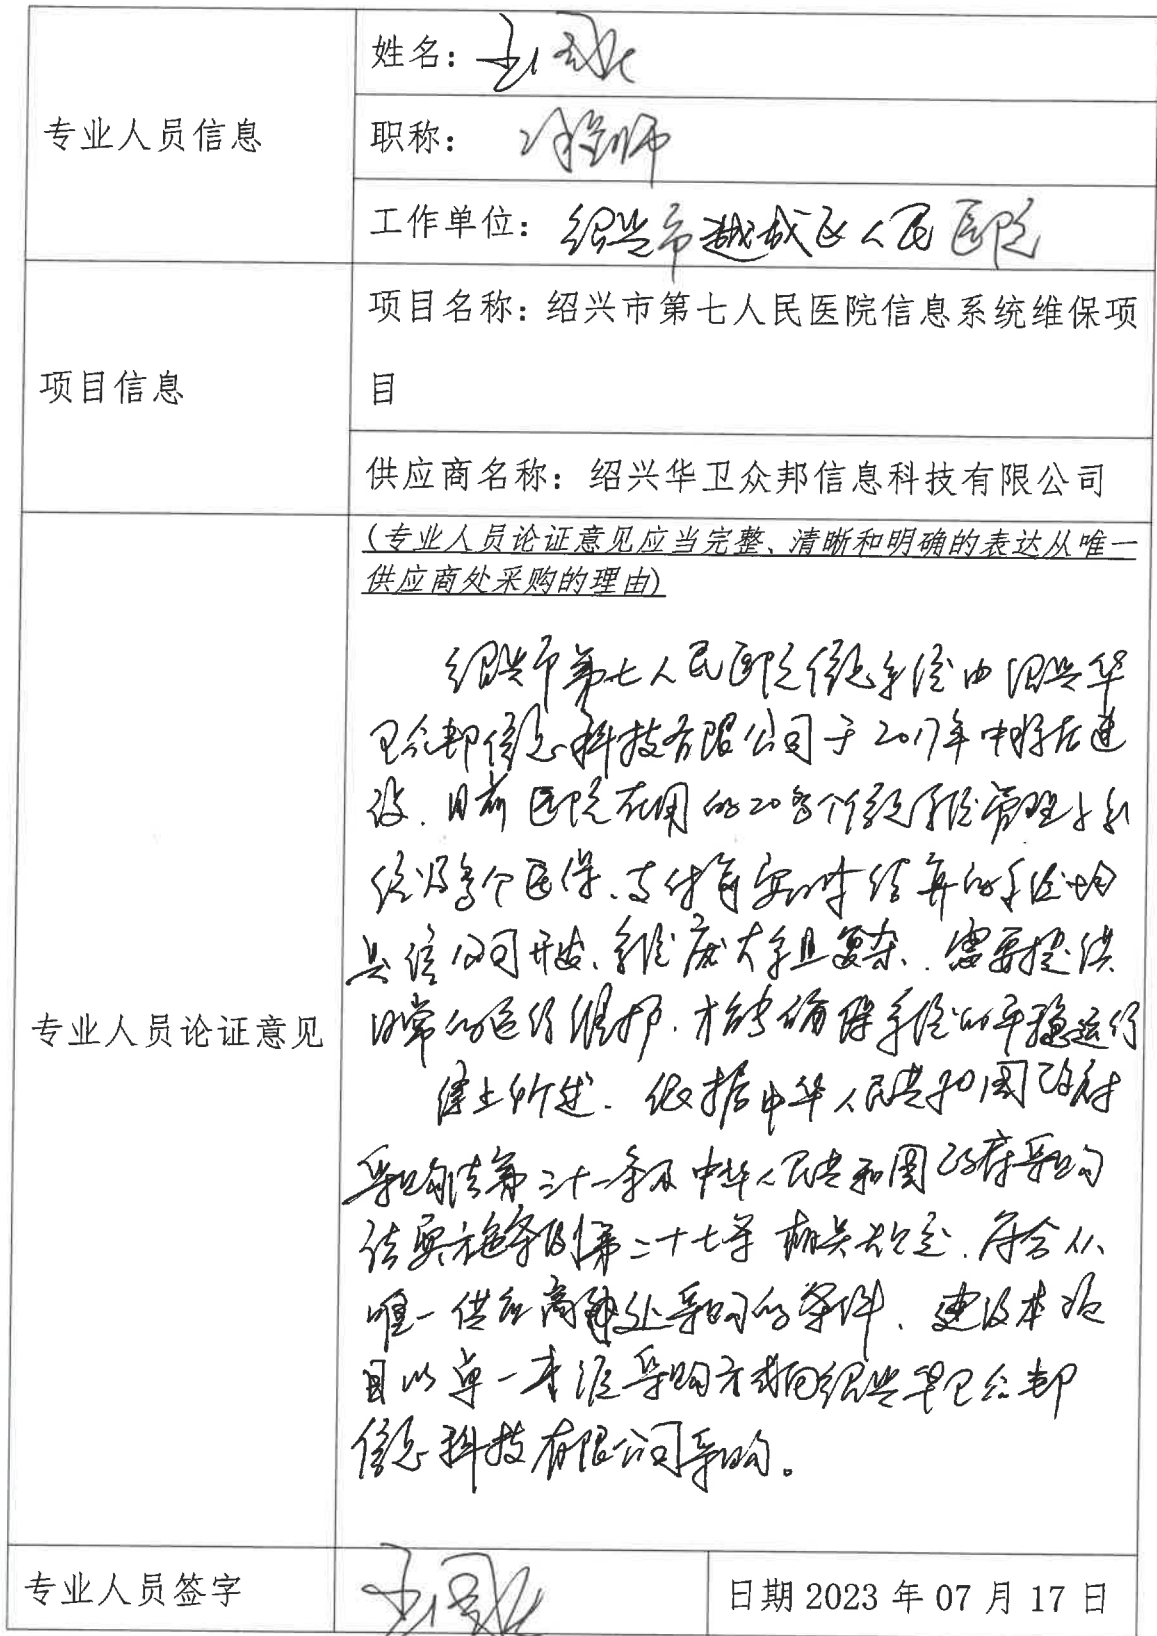 专业人员信息
姓名：
职称：工程师
工作单位：绍兴市越城区人民医院
项目信息
项目名称：绍兴市第七人民医院信息系统维保项
目
供应商名称：绍兴华卫众邦信息科技有限公司
专业人员论证意见
(专业人员论证意见应当完整、清晰和明确的表达从唯一
供应商处采购的理由)
绍兴市第七人民医院信息系统由绍兴华
卫众邦信息科技有限公司于2017年中标在建
设.目前医院在用的20多个信息系统管理
统及多个医保、支付有实时结算的系统均
该公司开发、系统庞大并且复杂、需要提供
日常的运行维护.才能够确保系统的平稳运行
综上所述.依据中华人民共和国政府
采购法第三十一条及中华人民共和国政府采购
法实施条例第二十七条相关规定.符合从
唯一供应商处采购的条件、建议本项
目以单一来源采购方式向绍兴华卫众邦
信息科技有限公司采购。
专业人员签字
日期 2023 年 07 月 17 日